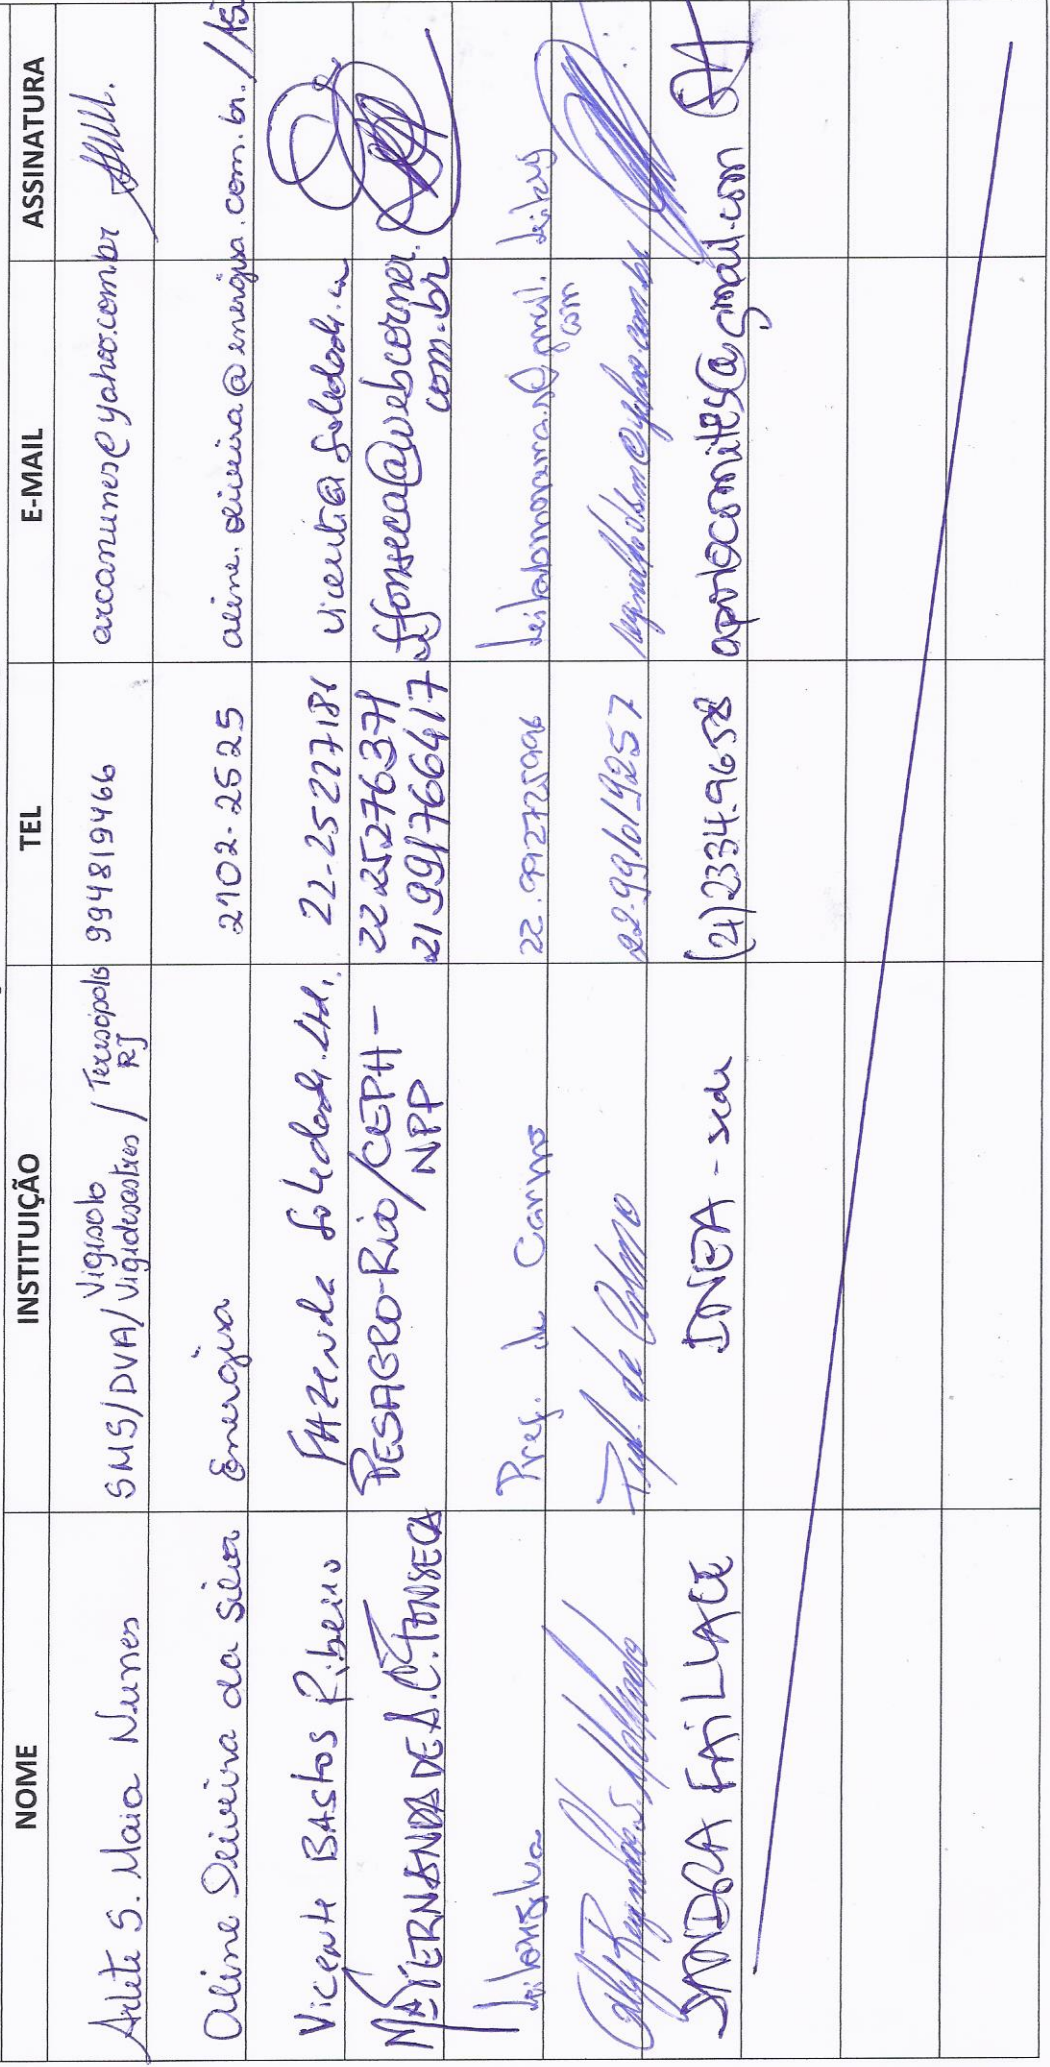 NOME INSTITUIÇÃO TEL E-MAIL ASSINATURA
Arlete S. Maia Nunes SMS/DVA/Vigisolo Vigidesastres / Teresópolis RJ 994819466 arcanunes@yahoo.com.br
Aline Oliveira da Silva Energisa 2102-2525 aline.oliveira@energisa.com.br
Vicente Bastos Ribeiro Fazenda Soledade Ltd. 22-25227181
Mª FERNANDA DE A.C. FONSECA PESAGRO-Rio/CEPH-NPP 22 25276371 21 991766417 mffonseca@webcorner.com.br
Pref. de Carmo
Pref. de Carmo 22-991019257
SANDRA FAILLACE INEA - sede (21)2334-9658 apoiocomites@gmail.com